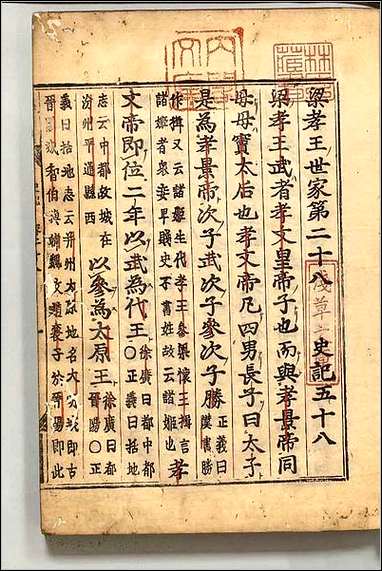 梁孝王世家第二十八　史記五十八
梁孝王武者孝文皇帝子也而與孝景帝同
母母竇太后也孝文帝凡四男長子曰太子
是為孝景帝次子武次子參次子勝正義曰漢書勝
作揖又云諸姬生代孝王參梁懷王揖言
諸姬者眾妾卑賤史不書姓故云諸姬也孝
文帝即位二年以武為代王○徐廣曰都中都正義曰括地
志云中都故城在
汾州平遙縣西以參為太原王徐廣曰都晉陽○正
義曰括地志云并州太原地名大
即古
晉
智伯
趙襄子於晉陽即此